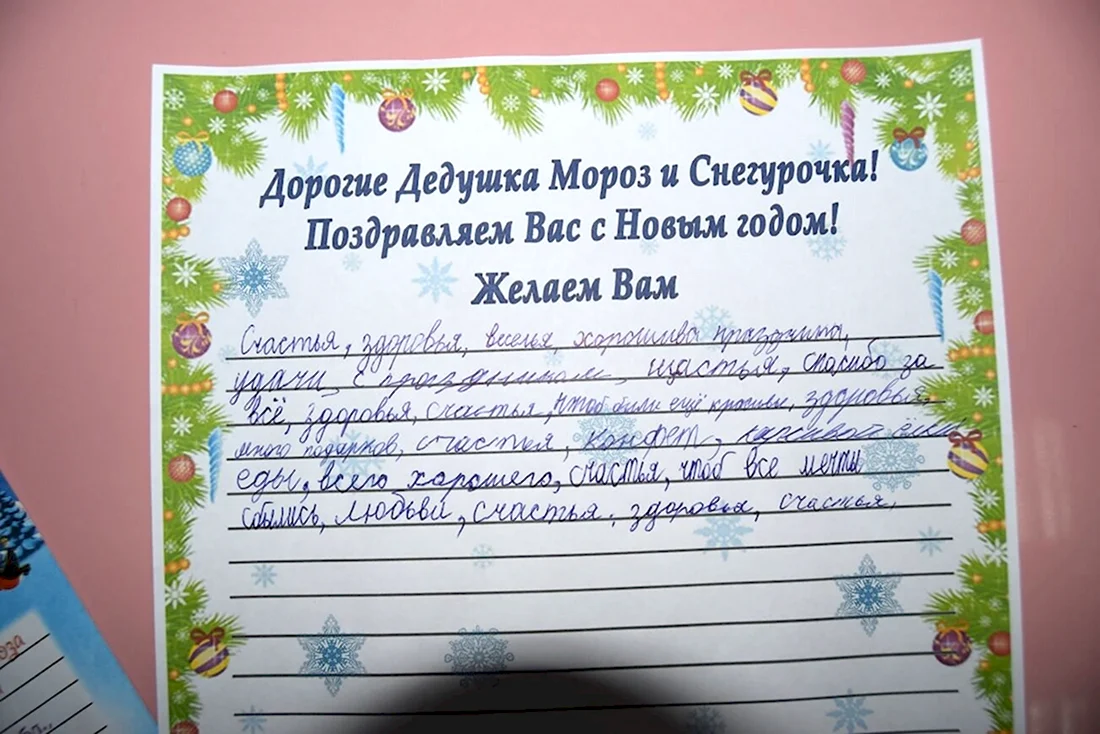 Дорогие Дедушка Мороз и Снегурочка!
Поздравляем Вас с Новым годом!
Желаем Вам
Счастья, здоровья, веселья, хорошива праздника,
удачи, с праздником, щастья, спасибо за
всё, здоровья, счастья, чтоб были ещё красивы, здоровья,
много подарков, счастья, конфет,
еды, всего хорошего, счастья, чтоб все мечты
сбылись, любьви, счастья, здоровья, счастья,
оза